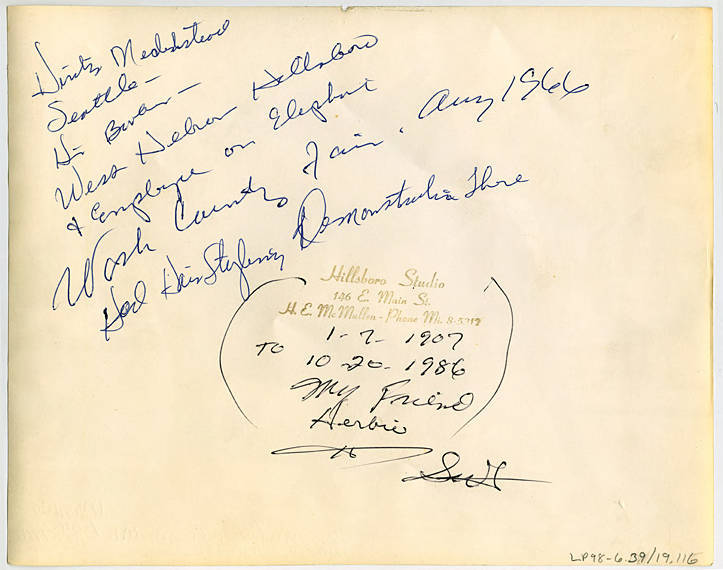 Seattle -
Hi
West Hebron Hillsboro
& Employee on Elephant
Wash County Fair. Aug 1966
Had Hair Styleing Demonstration There
Hillsboro Studio
146 E. Main St.
H. E. McMullen - Phone MI. 8-5212
1-7-1907
TO
10-20-1986
My Friend
Herbie
LP98-6.39/19.116